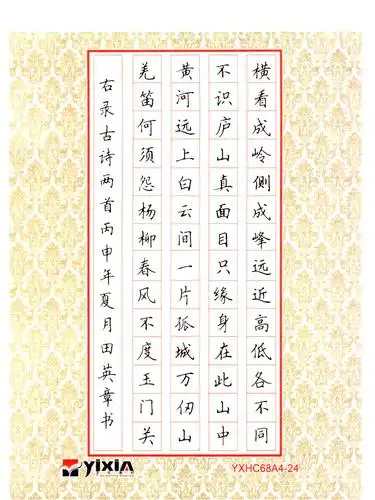 横看成岭侧成峰远近高低各不同
不识庐山真面目只缘身在此山中
黄河远上白云间一片孤城万仞山
羌笛何须怨杨柳春风不度玉门关
右录古诗两首丙申年夏月田英章书
yixin
YXHC68A4-24